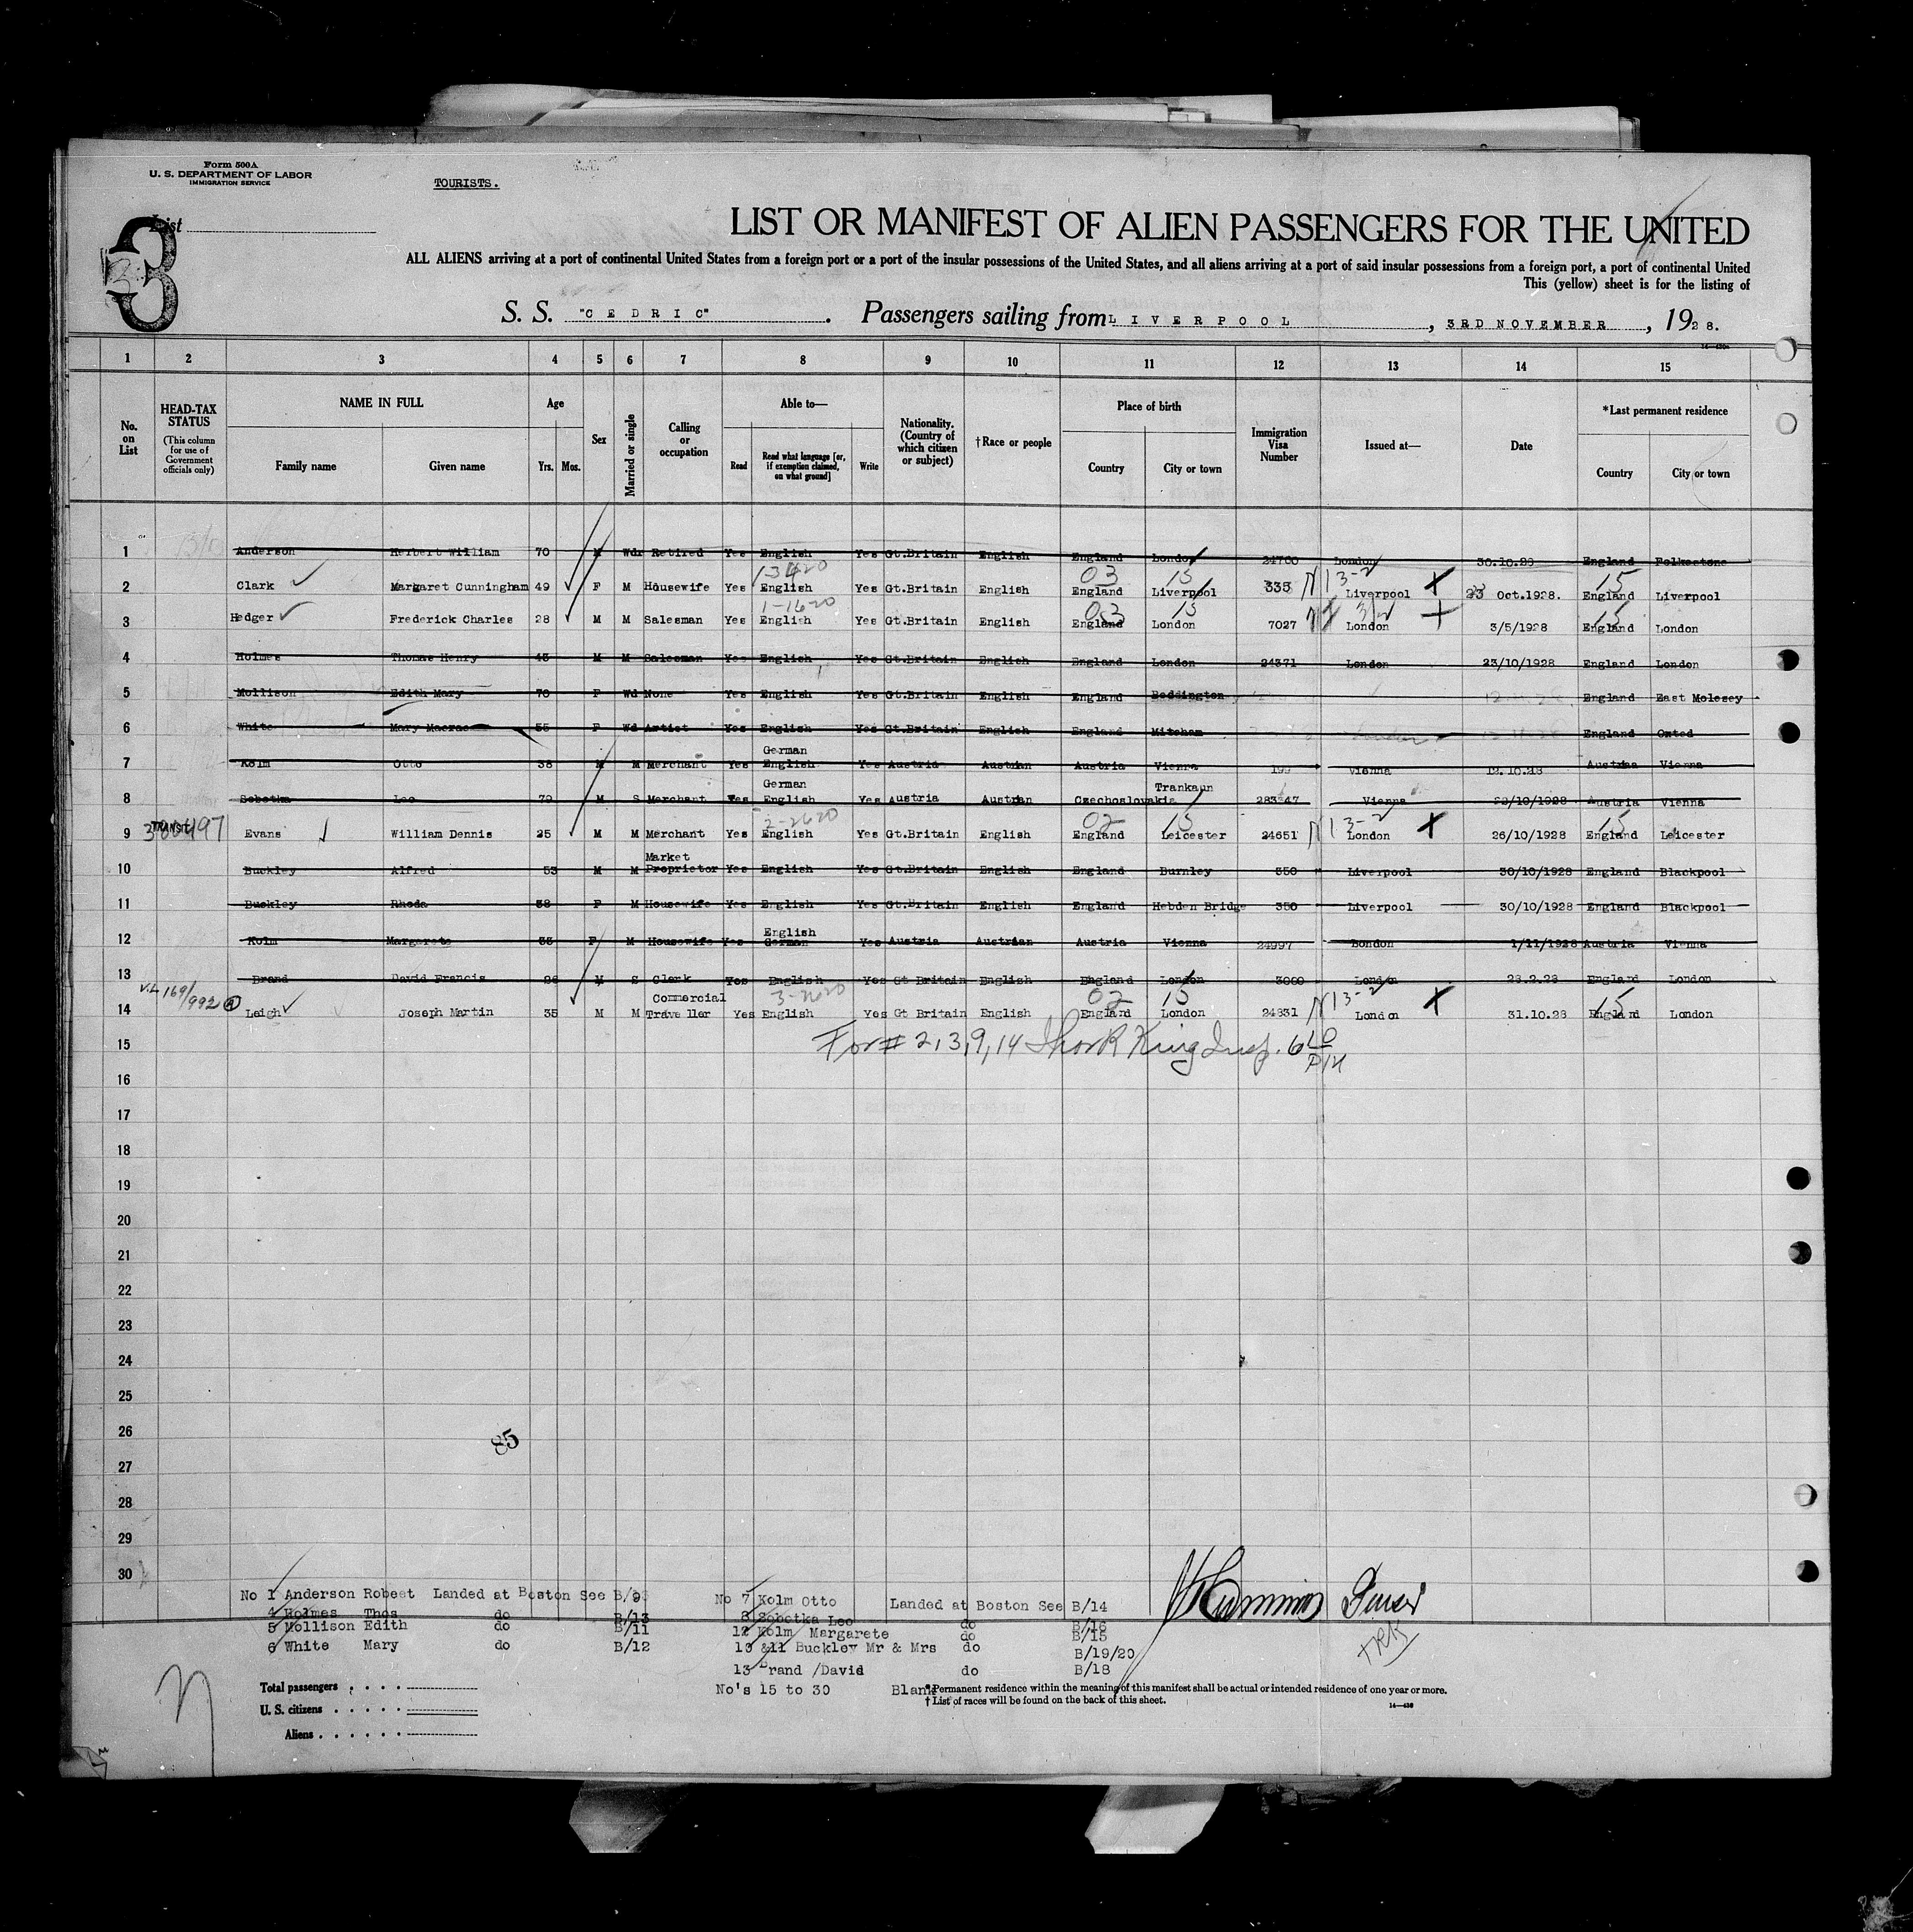 Form 500A
U. S. DEPARTMENT OF LABOR
IMMIGRATION SERVICE
TOURISTS.
List
3
LIST OR MANIFEST OF ALIEN PASSENGERS FOR THE UNITED
ALL ALIENS arriving at a port of continental United States from a foreign port or a port of the insular possessions of the United States, and all aliens arriving at a port of said insular possessions from a foreign port, a port of continental United
This (yellow) sheet is for the listing of
S. S. "CEDRIC" . Passengers sailing from LIVERPOOL , 3RD NOVEMBER , 1928.
1 2 3 4 5 6 7 8 9 10 11 12 13 14 15
No. on List
HEAD-TAX STATUS (This column for use of Government officials only)
NAME IN FULL
Family name Given name
Age
Yrs. Mos.
Sex
Married or single
Calling or occupation
Able to—
Read Read what language [or, if exemption claimed, on what ground] Write
Nationality. (Country of which citizen or subject)
†Race or people
Place of birth
Country City or town
Immigration Visa Number
Issued at—
Date
*Last permanent residence
Country City or town
1 Anderson Herbert William 70 M Wdr Retired Yes English Yes Gt.Britain English England London 24700 London 30.10.28 England Folkestone
13420 03 15 N 13-2 X 15
2 Clark Margaret Cunningham 49 F M Housewife Yes English Yes Gt.Britain English England Liverpool 335 Liverpool 23 Oct.1928. England Liverpool
1-1620 03 15 15
3 Hedger Frederick Charles 28 M M Salesman Yes English Yes Gt.Britain English England London 7027 London 3/5/1928 England London
4 Holmes Thomas Henry 43 M M Salesman Yes English Yes Gt.Britain English England London 24371 London 23/10/1928 England London
5 Mollison Edith Mary 70 F Wd None Yes English Yes Gt.Britain English England Beddington England East Molesey
6 White Mary Macrae 55 F Wd Artist Yes English Yes Gt.Britain English England Mitcham England Oxted
7 Kolm Otto 38 M M Merchant Yes German English Yes Austria Austrian Austria Vienna Vienna 12.10.28 Austria Vienna
8 Sobotka Leo 72 M S Merchant Yes German English Yes Austria Austrian Czechoslovakia Trankaun 283547 Vienna 22/10/1928 Austria Vienna
TRANSIT 2-2620 02 15 N 13-2 X 15
9 Evans William Dennis 25 M M Merchant Yes English Yes Gt.Britain English England Leicester 24651 London 26/10/1928 England Leicester
10 Buckley Alfred 53 M M Market Proprietor Yes English Yes Gt.Britain English England Burnley 350 Liverpool 30/10/1928 England Blackpool
11 Buckley Rhoda 58 F M Housewife Yes English Yes Gt.Britain English England Hebden Bridge 350 Liverpool 30/10/1928 England Blackpool
12 Kolm Margarete 35 F M Housewife Yes English German Yes Austria Austrian Austria Vienna 24997 London 1/11/1928 Austria Vienna
13 Brand David Francis 26 M S Clerk Yes English Yes Gt Britain English England London 3000 London 28.2.28 England London
V.L 169/992 3-2620 02 15 N 13-2 X 15
14 Leigh Joseph Martin 35 M M Commercial Traveller Yes English Yes Gt Britain English England London 24831 London 31.10.28 England London
15 For # 2,3,9,14 King Insp.
16
17
18
19
20
21
22
23
24
25
26
85
27
28
29
30
No 1 Anderson Robert Landed at Boston See B/9
4 Holmes Thos do B/13
5 Mollison Edith do B/11
6 White Mary do B/12
No 7 Kolm Otto Landed at Boston See B/14
8 Sobotka Leo do B/16
12 Kolm Margarete do B/15
10 &11 Buckley Mr & Mrs do B/19/20
13 Brand /David do B/18
No's 15 to 30 Blank
Total passengers
U. S. citizens
Aliens
*Permanent residence within the meaning of this manifest shall be actual or intended residence of one year or more.
†List of races will be found on the back of this sheet.
14—430